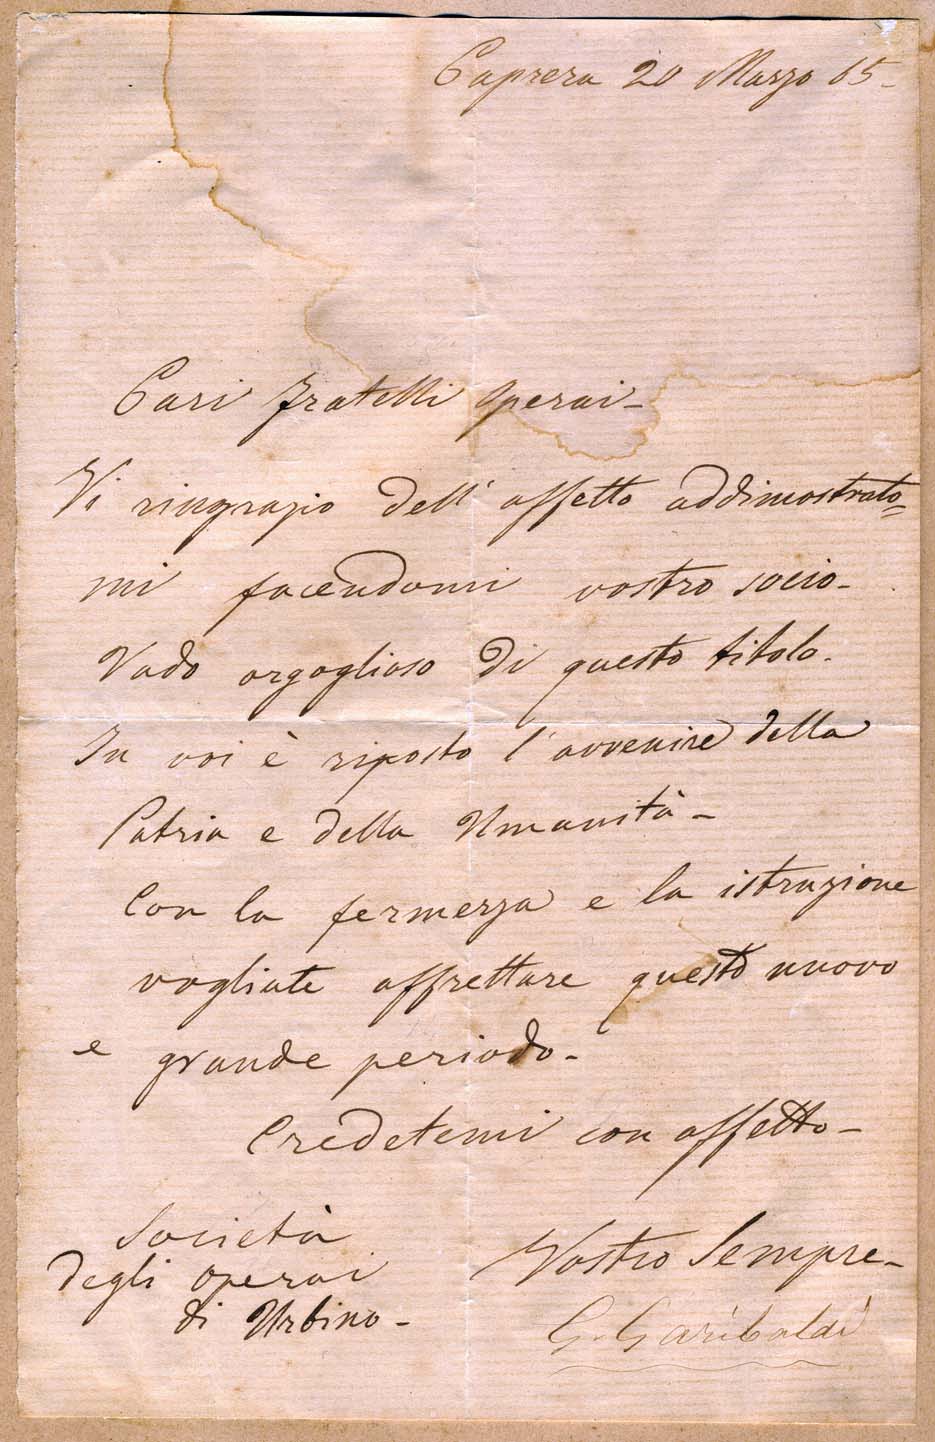 Caprera 20 Marzo 65-
Cari Fratelli Operai-
Vi ringrazio dell' affetto addimostrato=
mi facendomi vostro socio-
Vado orgoglioso di questo titolo.
In voi è riposto l'avvenire della
Patria e della Umanità-
Con la fermezza e la istruzione
vogliate affrettare questo nuovo
e grande periodo-
Credetemi con affetto-
Società
degli operai
di Urbino-
Vostro Sempre-
G. Garibaldi